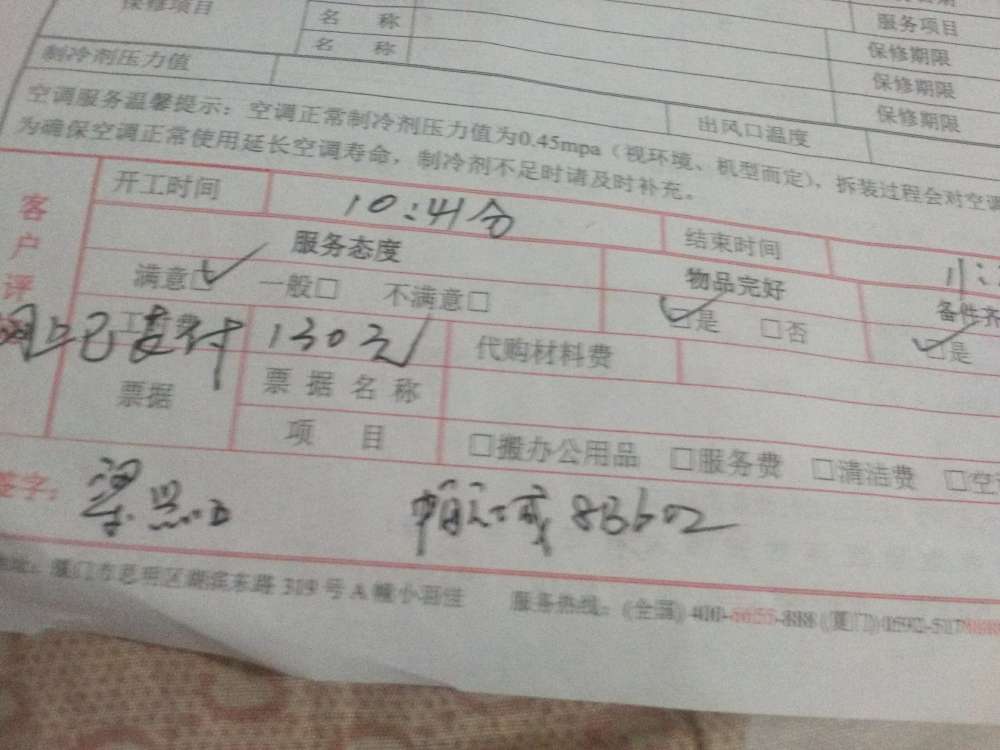 保修项目
名 称
服务项目
名 称
保修期限
制冷剂压力值
保修期限
出风口温度
保修期限
空调服务温馨提示：空调正常制冷剂压力值为0.45mpa（视环境、机型而定），拆装过程会对空调
为确保空调正常使用延长空调寿命，制冷剂不足时请及时补充。
客户评
开工时间 10:41分 结束时间
服务态度 物品完好
满意☑ 一般□ 不满意□ ☑是 □否 ☑是
网上已支付 130元 代购材料费
票据 票据名称
项 目 □搬办公用品 □服务费 □清洁费
签字：梁 8B602
厦门市思明区湖滨东路 319 号 A 幢小羽佳 服务热线：(全国)